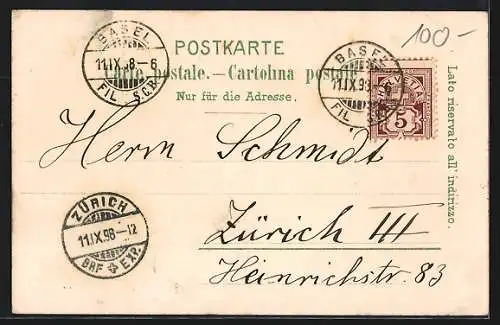 POSTKARTE
Carte postale.—Cartolina postale
Nur für die Adresse.
Lato riservato all' indirizzo.
100-
BASEL
11.IX.98-6
FIL. S.C.B.
BASEL
11.IX.98-6
FIL
HELVETIA
5
Herrn Schmidt
Zürich III
Heinrichstr. 83
ZÜRICH
11.IX.98-12
BRF EXP.